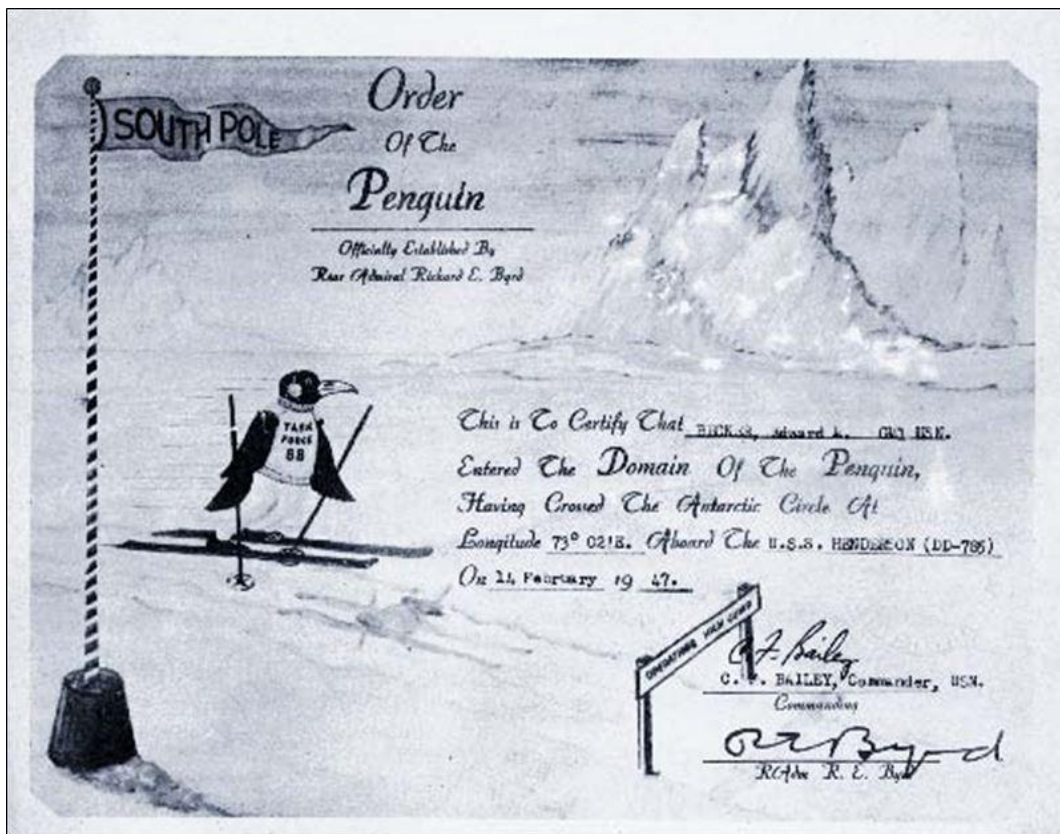 SOUTH POLE
Order
Of The
Penguin
Officially Established By
Rear Admiral Richard E. Byrd
TASK
FORCE
68
This is To Certify That Edward A. USN.
Entered The Domain Of The Penguin,
Having Crossed The Antarctic Circle At
Longitude 73° 02'E. Aboard The U.S.S. HENDERSON (DD-785)
On 14 February 19 47.
OPERATIONS HIGH JUMP
C F Bailey
C. F. BAILEY, Commander, USN.
Commanding
R E Byrd
RAdm R. E. Byrd